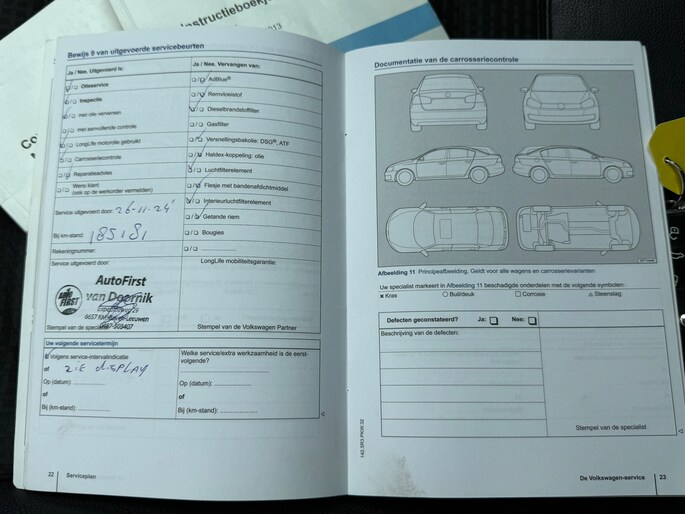 Instructieboekje
Bewijs 9 van uitgevoerde servicebeurten
Ja / Nee. Uitgevoerd is:
Olieservice
Inspectie
met olie verversen
met aanvullende controle
LongLife motorolie gebruikt
Carrosseriecontrole
Reparatieadvies
Wens klant
(ook op de werkorder vermelden)
Service uitgevoerd door: 26-11-24
Bij km-stand: 185181
Rekeningnummer:
Service uitgevoerd door:
AutoFirst
van Doornik
Stempel van de specialist
Ja / Nee. Vervangen van:
AdBlue®
Remvloeistof
Dieselbrandstoffilter
Gasfilter
Versnellingsbakolie: DSG®, ATF
Haldex-koppeling: olie
Luchtfilterelement
Flesje met bandenafdichtmiddel
Interieurluchtfilterelement
Getande riem
Bougies
LongLife mobiliteitsgarantie:
Stempel van de Volkswagen Partner
Uw volgende servicetermijn
Volgens service-intervalindicatie
of ZIE DISPLAY
Op (datum):
of
Bij (km-stand):
Welke service/extra werkzaamheid is de eerst-
volgende?
Op (datum):
of
Bij (km-stand):
22 Serviceplan
Documentatie van de carrosseriecontrole
Afbeelding 11 Principeafbeelding. Geldt voor alle wagens en carrosserievarianten
Uw specialist markeert in Afbeelding 11 beschadigde onderdelen met de volgende symbolen:
Kras
Buil/deuk
Corrosie
Steenslag
Defecten geconstateerd? Ja: Nee:
Beschrijving van de defecten:
Stempel van de specialist
142.5R3.PKW.32
De Volkswagen-service 23